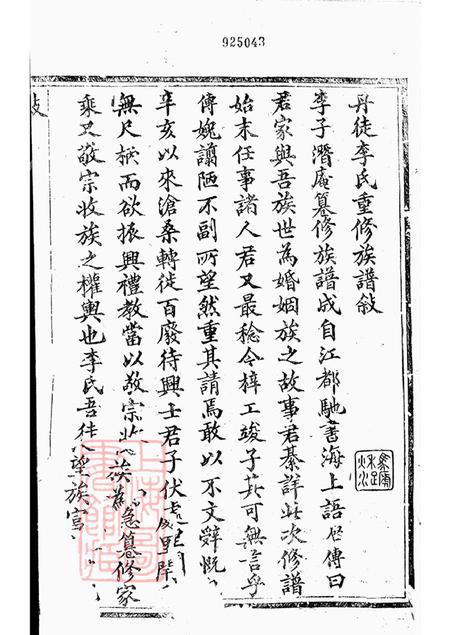 925043
丹徒李氏重修族譜敍
李子潛庵纂修族譜成自江都馳書海上語傳曰
君家與吾族世為婚姻族之故事君綦詳此次修譜
始末任事諸人君又最稔今梓工竣子其可無言乎
傳婉謝陋不副所望然重其請焉敢以不文辭慨
辛亥以來滄桑轉徙百廢待興士君子伏處里閈
無尺柄而欲振興禮教當以敬宗收族為急纂修家
乘又敬宗收族之權輿也李氏吾徒望族當
敍